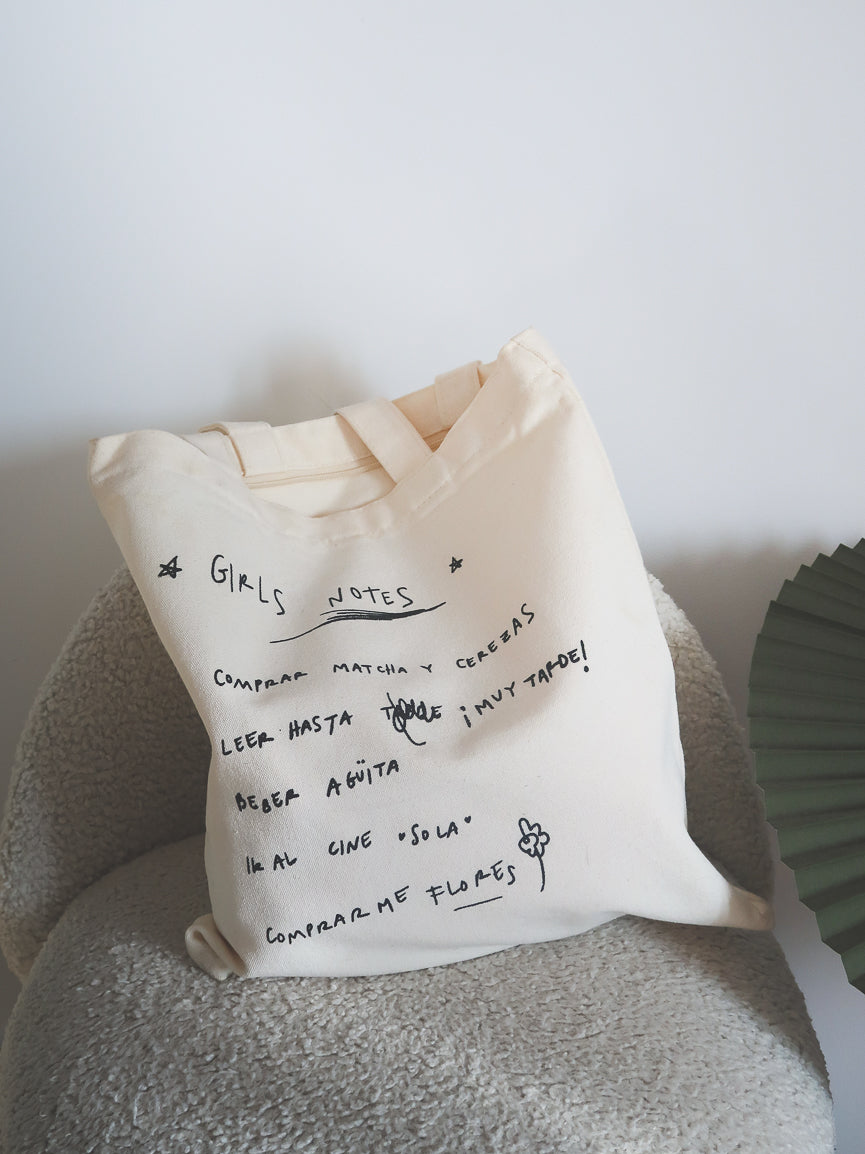 GIRLS NOTES
COMPRAR MATCHA Y CEREZAS
LEER HASTA ¡MUY TARDE!
BEBER AGÜITA
IR AL CINE "SOLA"
COMPRARME FLORES